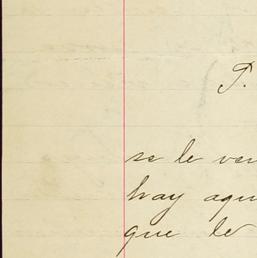 P.
se le ven
hay aqu
que le